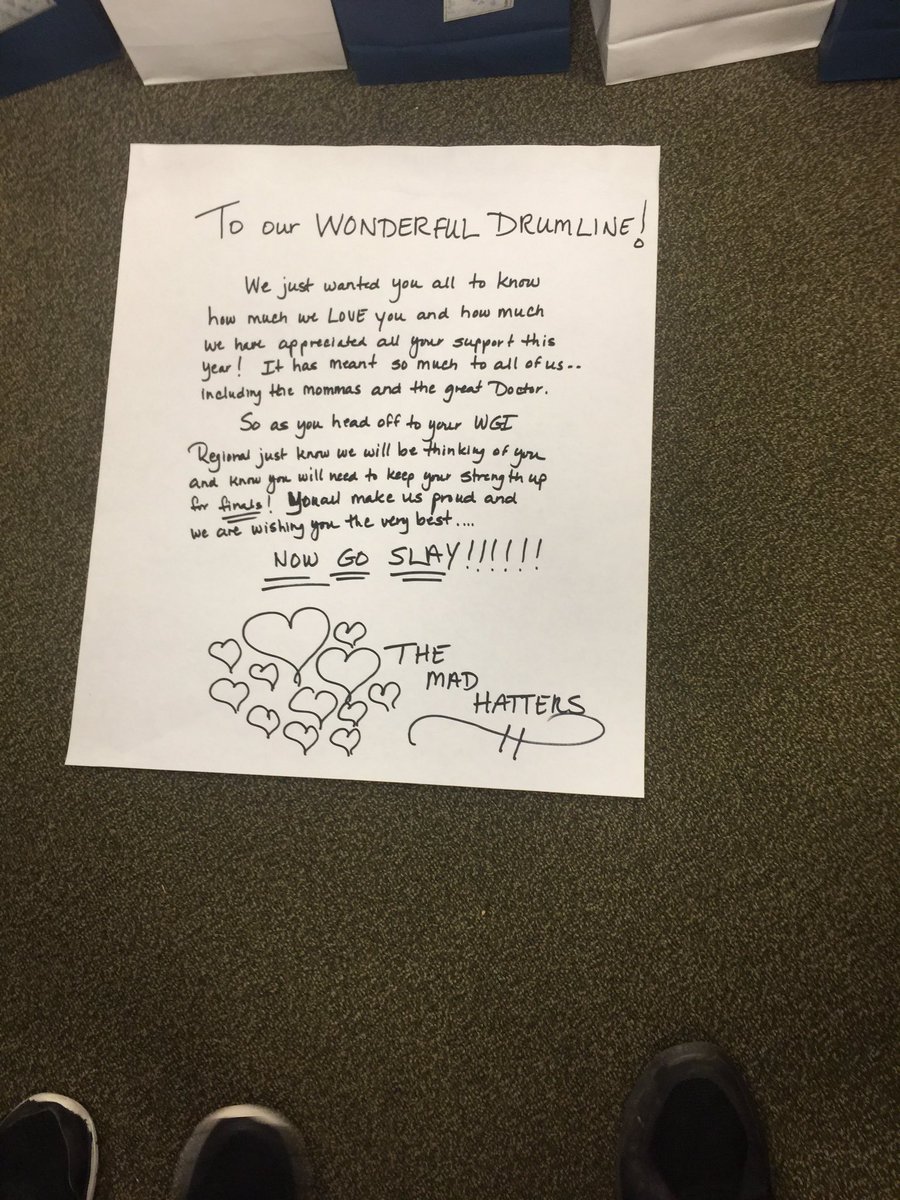 To our WONDERFUL DRUMLINE!
We just wanted you all to know
how much we LOVE you and how much
we have appreciated all your support this
year! It has meant so much to all of us..
including the mommas and the great Doctor.
So as you head off to your WGI
Regional just know we will be thinking of you
and know you will need to keep your strength up
for finals! You all make us proud and
we are wishing you the very best....
NOW GO SLAY!!!!!!
THE
MAD
HATTERS